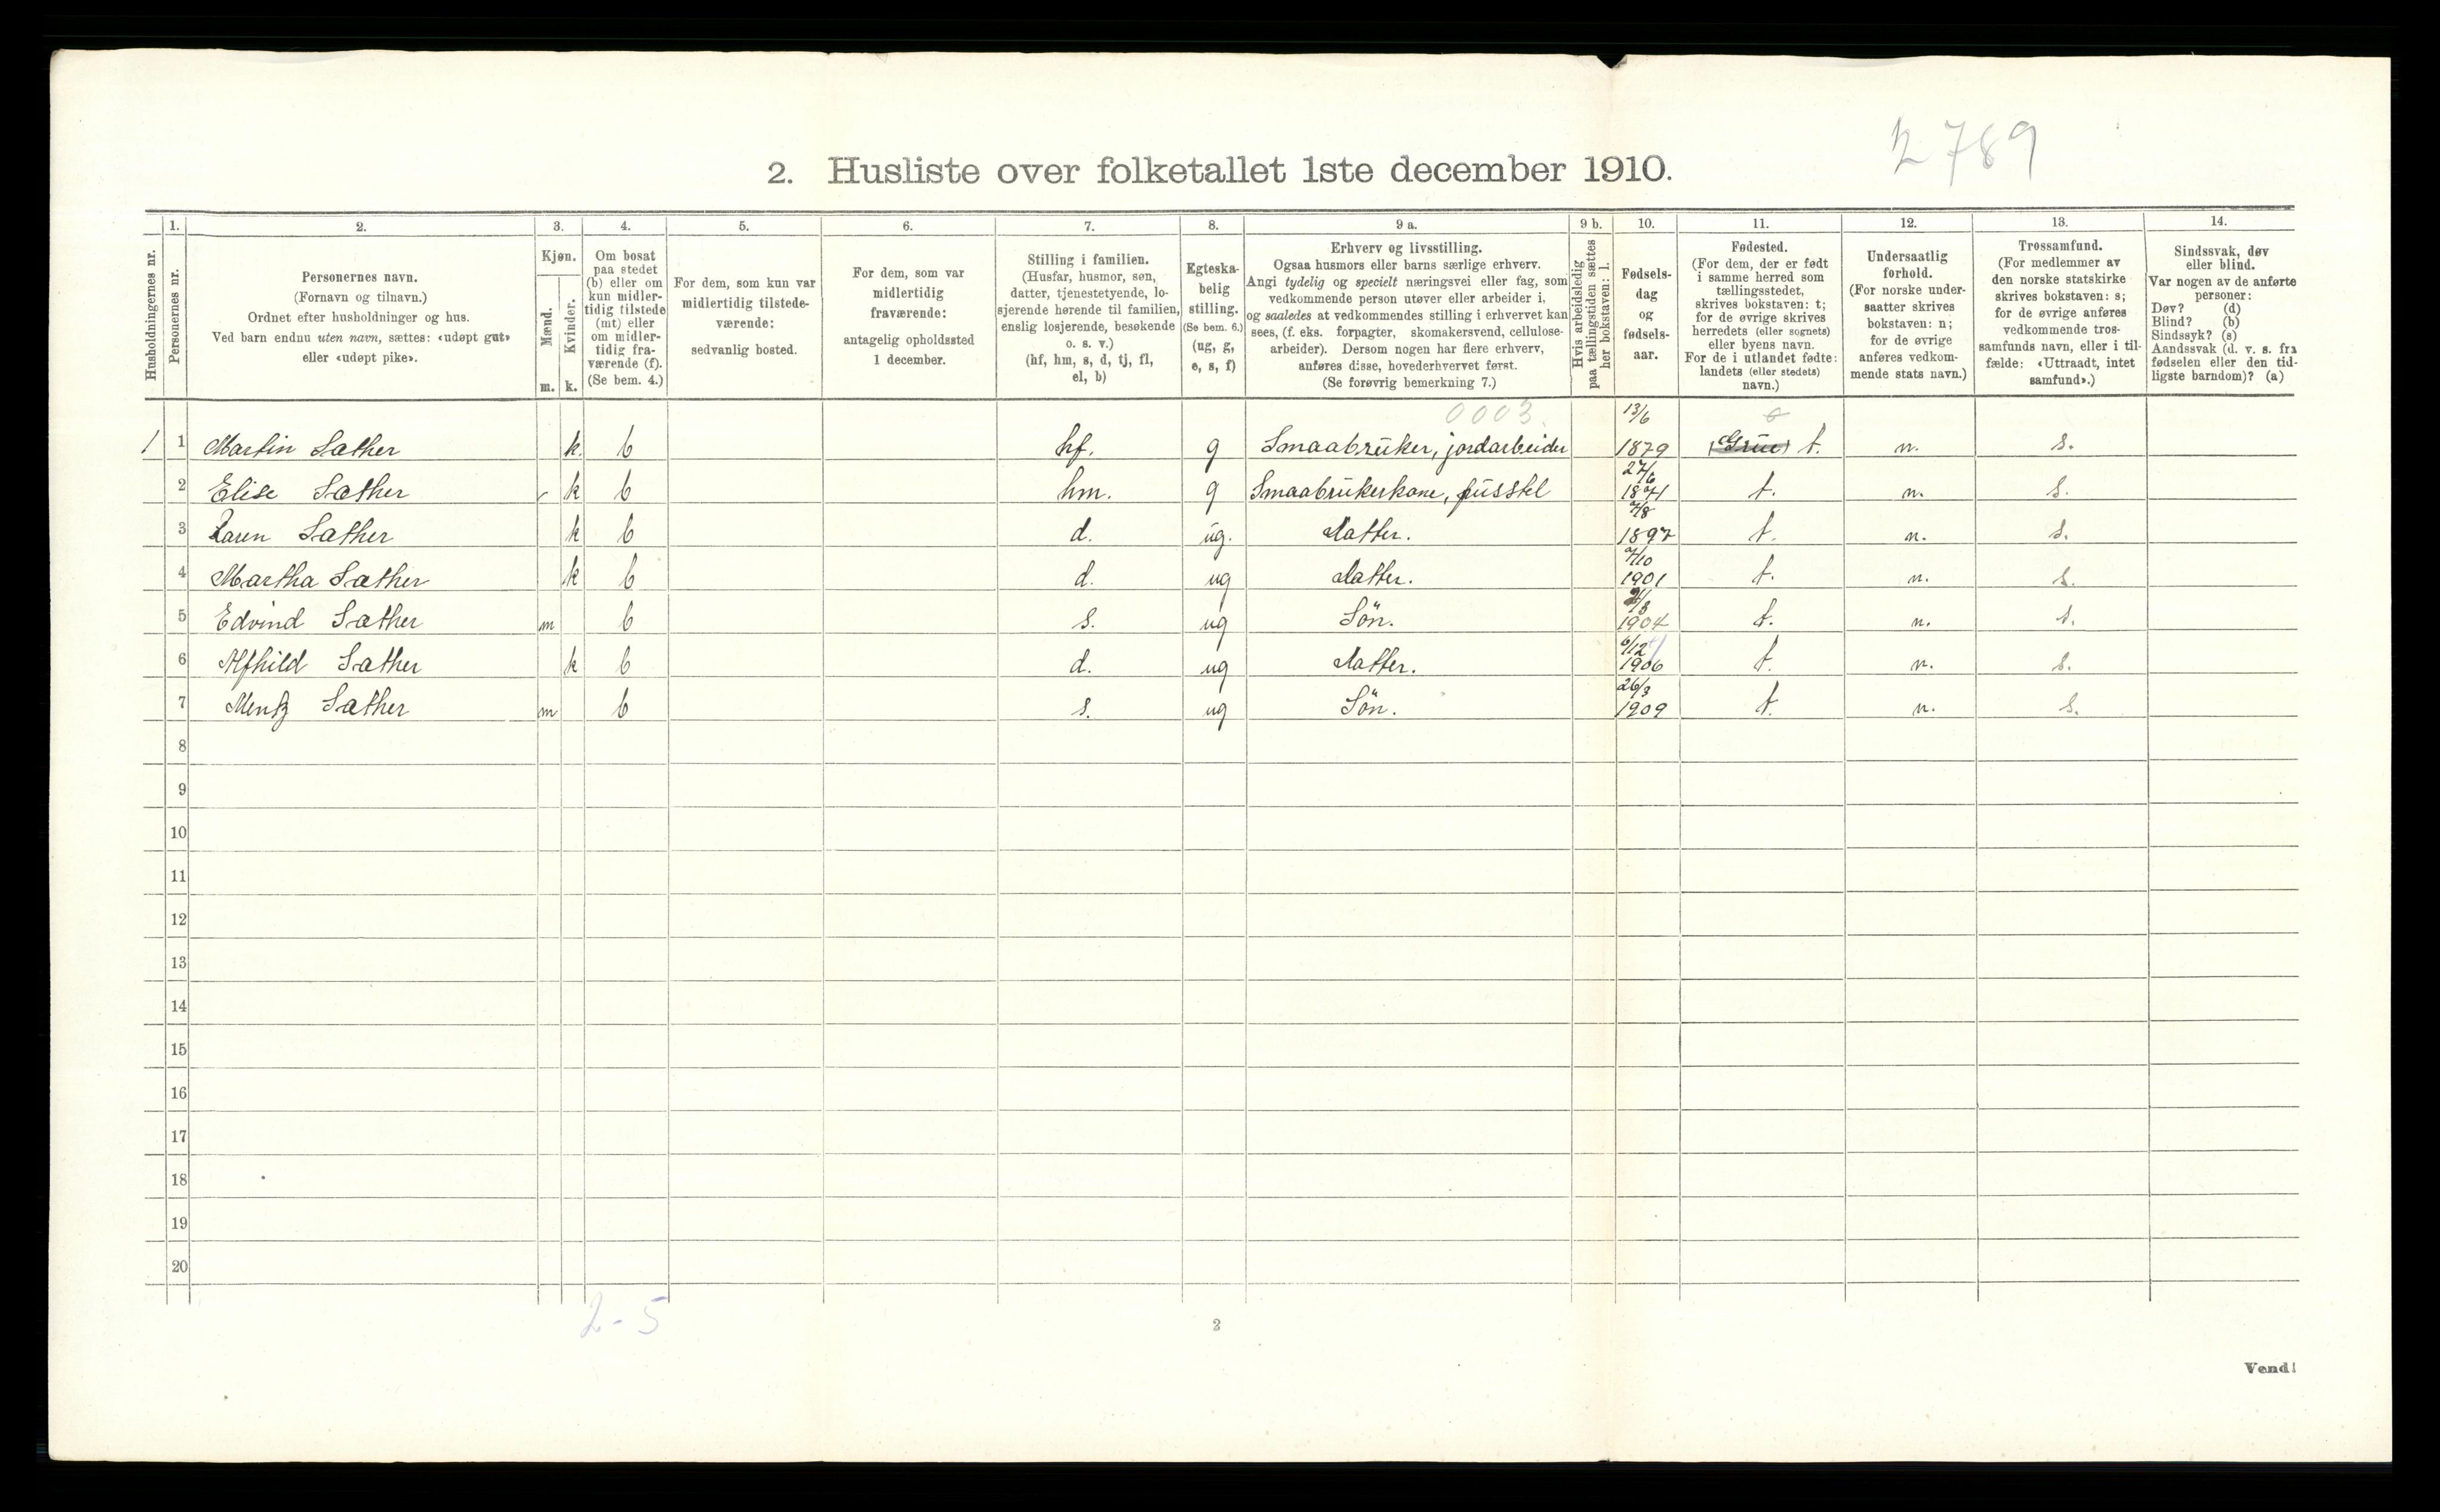 2789
2. Husliste over folketallet 1ste december 1910.
1. 2. 3. 4. 5. 6. 7. 8. 9 a. 9 b. 10. 11. 12. 13. 14.
Husholdningernes nr.
Personernes nr.
Personernes navn.
(Fornavn og tilnavn.)
Ordnet efter husholdninger og hus.
Ved barn endnu uten navn, sættes: «udøpt gut»
eller «udøpt pike».
Kjøn.
Mænd.
Kvinder.
m. k.
Om bosat
paa stedet
(b) eller om
kun midler-
tidig tilstede
(mt) eller
om midler-
tidig fra-
værende (f).
(Se bem. 4.)
For dem, som kun var
midlertidig tilstede-
værende:
sedvanlig bosted.
For dem, som var
midlertidig
fraværende:
antagelig opholdssted
1 december.
Stilling i familien.
(Husfar, husmor, søn,
datter, tjenestetyende, lo-
sjerende hørende til familien,
enslig losjerende, besøkende
o. s. v.)
(hf, hm, s, d, tj, fl,
el, b)
Egteska-
belig
stilling.
(Se bem. 6.)
(ug, g,
e, s, f)
Erhverv og livsstilling.
Ogsaa husmors eller barns særlige erhverv.
Angi tydelig og specielt næringsvei eller fag, som
vedkommende person utøver eller arbeider i,
og saaledes at vedkommendes stilling i erhvervet kan
sees, (f. eks. forpagter, skomakersvend, cellulose-
arbeider). Dersom nogen har flere erhverv,
anføres disse, hovederhvervet først.
(Se forøvrig bemerkning 7.)
Hvis arbeidsledig
paa tællingstiden sættes
her bokstaven: l.
Fødsels-
dag
og
fødsels-
aar.
Fødested.
(For dem, der er født
i samme herred som
tællingsstedet,
skrives bokstaven: t;
for de øvrige skrives
herredets (eller sognets)
eller byens navn.
For de i utlandet fødte:
landets (eller stedets)
navn.)
Undersaatlig
forhold.
(For norske under-
saatter skrives
bokstaven: n;
for de øvrige
anføres vedkom-
mende stats navn.)
Trossamfund.
(For medlemmer av
den norske statskirke
skrives bokstaven: s;
for de øvrige anføres
vedkommende tros-
samfunds navn, eller i til-
fælde: «Uttraadt, intet
samfund».)
Sindssvak, døv
eller blind.
Var nogen av de anførte
personer:
Døv? (d)
Blind? (b)
Sindssyk? (s)
Aandssvak (d. v. s. fra
fødselen eller den tid-
ligste barndom)? (a)
0003. 13/6
1 1 Martin Sæther k. b hf. g Smaabrüker, jordarbeider 1879 (Grue) t. n. s.
27/6
2 Elise Sæther k b hm. g Smaabrükerkone, füsstel 1871 t. n. s.
3 Karen Sæther k b d. üg. datter. 1897 t. n. s.
4 Martha Sæther k b d. ug datter. 1901 t. n. s.
5 Edvind Sæther m b s. ug Sön. 1904 t. n. s.
6/12
6 Alfhild Sæther k b d. ug datter. 1906 t. n. s.
26/3
7 Mentz Sæther m b s. ug Sön. 1909 t. n. s.
8
9
10
11
12
13
14
15
16
17
18
19
20
2-5
2
Vend!